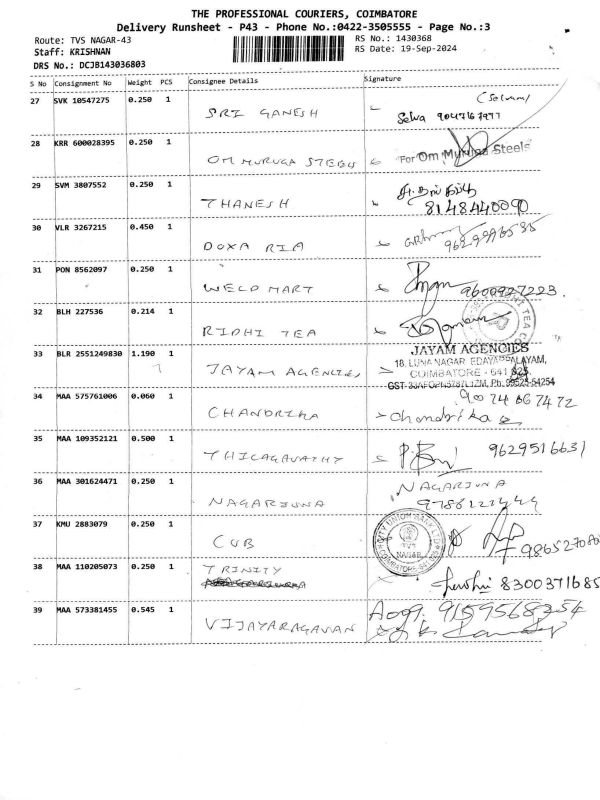 THE PROFESSIONAL COURIERS, COIMBATORE
Delivery Runsheet - P43 - Phone No.:0422-3505555 - Page No.:3
Route: TVS NAGAR-43
RS No.: 1430368
Staff: KRISHNAN
RS Date: 19-Sep-2024
DRS No.: DCJB143036803
S No Consignment No Weight PCS Consignee Details Signature
27 SVK 10547275 0.250 1 SRI GANESH
(Selvam)
Selva 9047167977
28 KRR 600028395 0.250 1 OM MURUGA STEELS For Om Muruga Steels
29 SVM 3807552 0.250 1 THANESH
8148440090
30 VLR 3267215 0.450 1 DOXA RIA
31 PON 8562097 0.250 1 WELD MART 9600927223.
32 BLH 227536 0.214 1 RIDHI TEA
33 BLR 2551249830 1.190 1 JAYAM AGENCIES JAYAM AGENCIES
18, LUNA NAGAR EDAYARPALAYAM,
COIMBATORE - 641 025
34 MAA 575761006 0.060 1 CHANDRIKA Chandrika
35 MAA 109352121 0.500 1 THILAGAVATHY 9629516631
36 MAA 301624471 0.250 1 NAGARJUNA NAGARJUNA
37 KMU 2883079 0.250 1 CUB CITY UNION BANK LTD
TVS
NAGAR
38 MAA 110205073 0.250 1 TRINITY
8300371685
39 MAA 573381455 0.545 1 VIJAYARAGAVAN